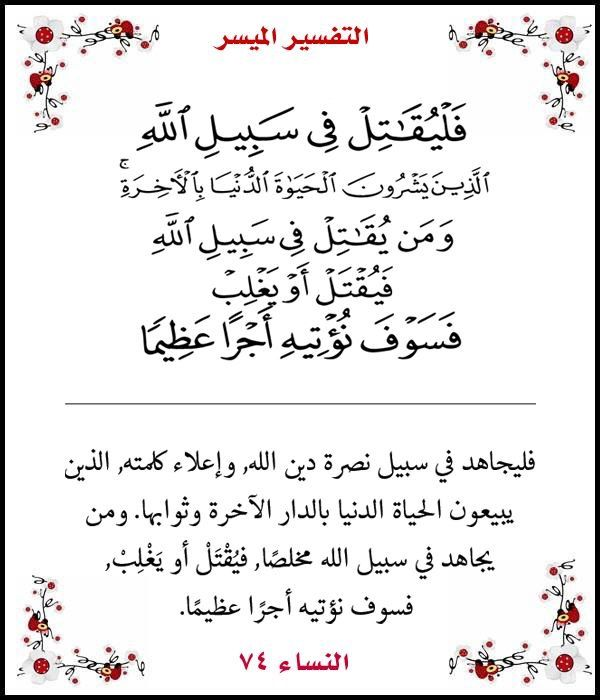 التفسير الميسر
فَلْيُقَٰتِلْ فِى سَبِيلِ ٱللَّهِ
ٱلَّذِينَ يَشْرُونَ ٱلْحَيَوٰةَ ٱلدُّنْيَا بِٱلْأَخِرَةِ ۚ
وَمَن يُقَٰتِلْ فِى سَبِيلِ ٱللَّهِ
فَيُقْتَلْ أَوْ يَغْلِبْ
فَسَوْفَ نُؤْتِيهِ أَجْرًا عَظِيمًا
فليجاهد في سبيل نصرة دين الله, وإعلاء كلمته, الذين
يبيعون الحياة الدنيا بالدار الآخرة وثوابها. ومن
يجاهد في سبيل الله مخلصًا, فيُقْتَلْ أو يَغْلِبْ,
فسوف نؤتيه أجرًا عظيمًا.
النساء ٧٤